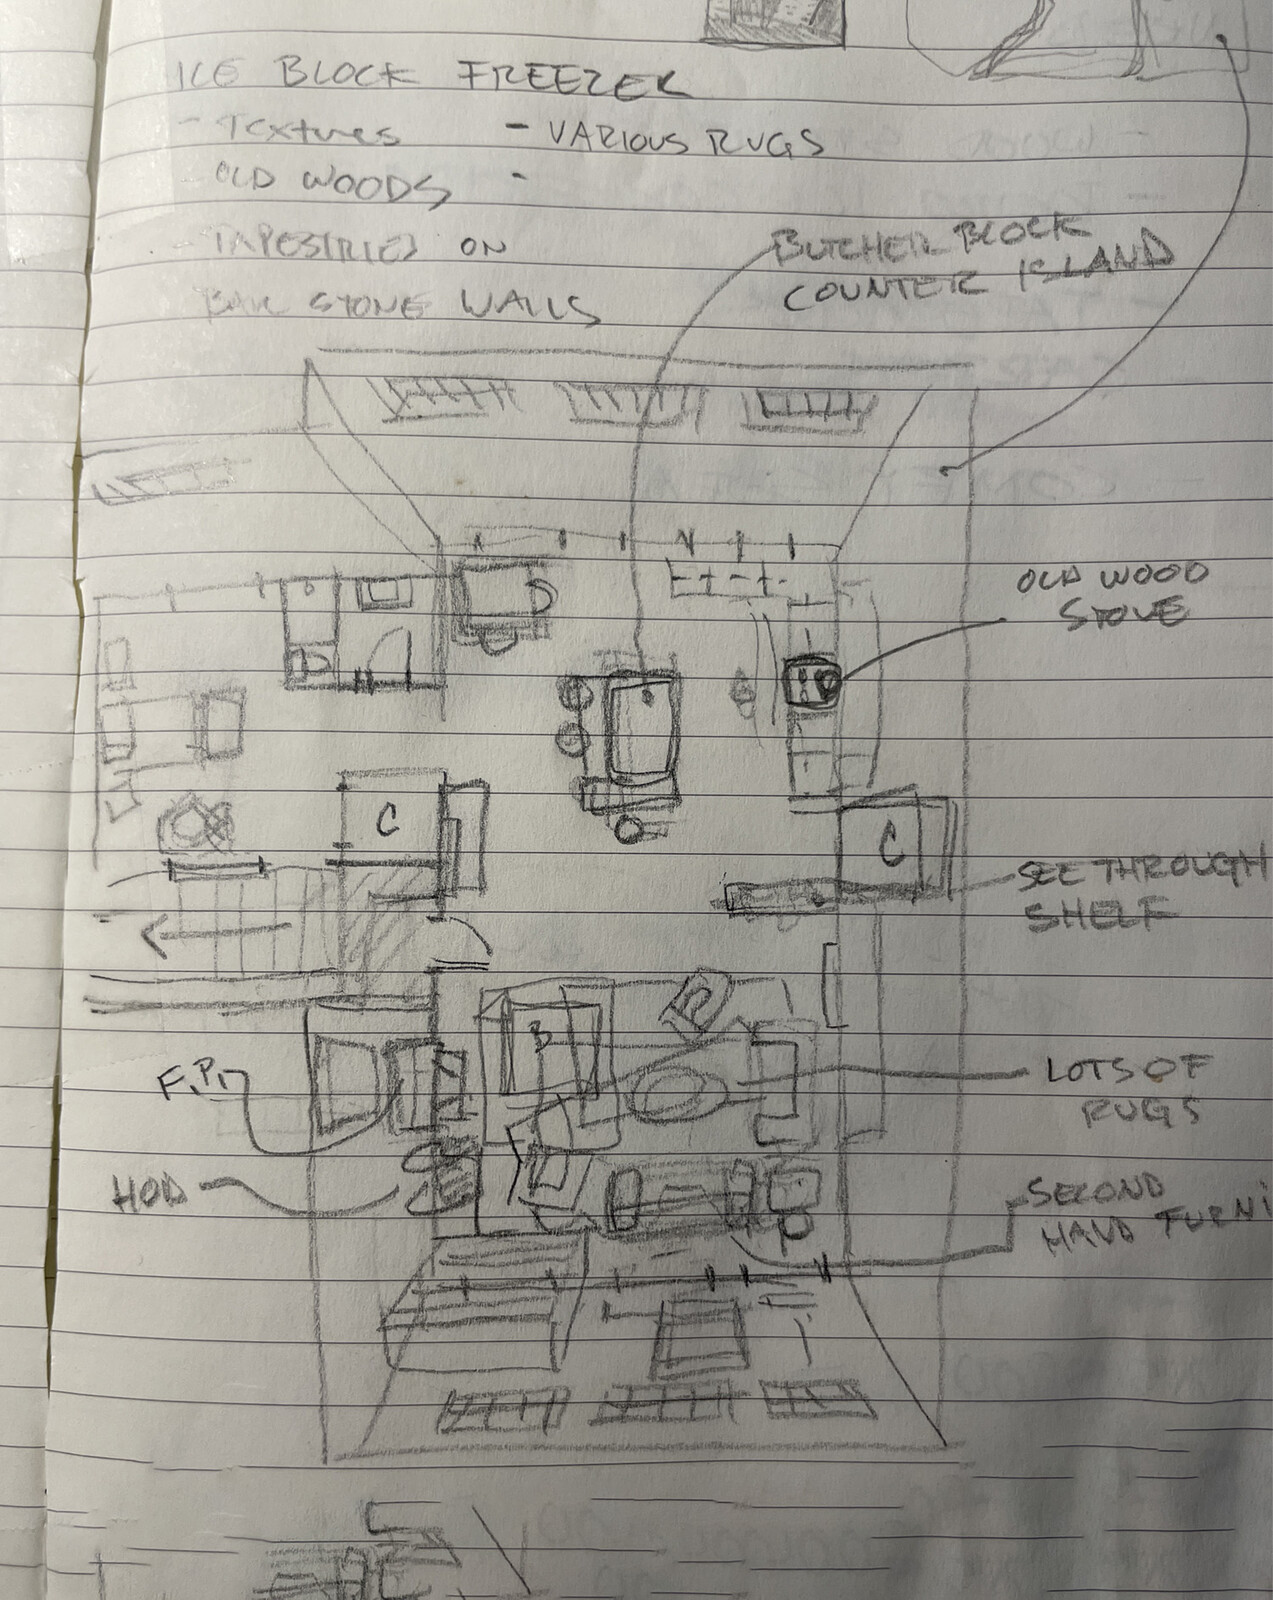 ICE BLOCK FREEZER
- Textures - VARIOUS RUGS
- OLD WOODS -
- TAPESTRIES ON
BARE STONE WALLS
BUTCHER BLOCK
COUNTER ISLAND
OLD WOOD
STOVE
C
C
SEE THROUGH
SHELF
B
F.P.
LOTS OF
RUGS
HOD
SECOND
HAND FURNI